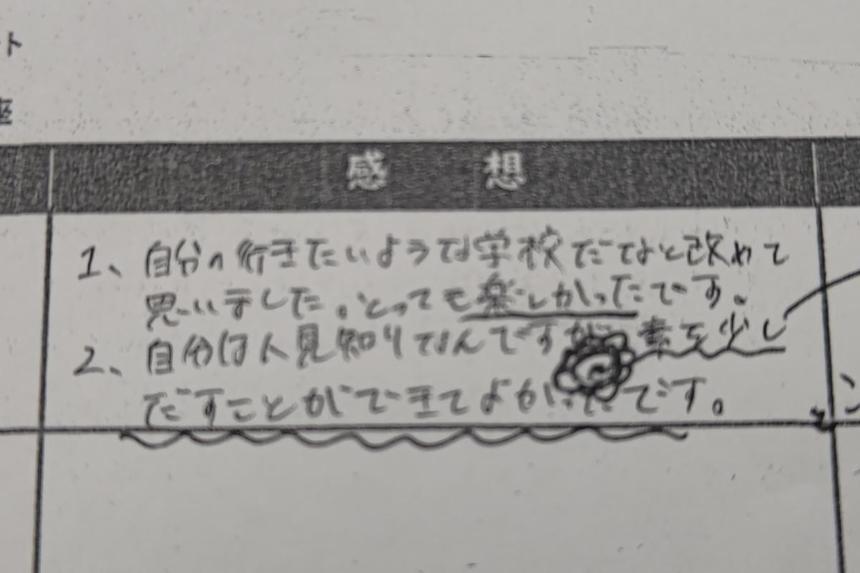 ト
座
感 想
1、自分の行きたいような学校だなと改めて
思いました。とっても楽しかったです。
2、自分は人見知りなんですが 素を少し
だすことができてよかったです。